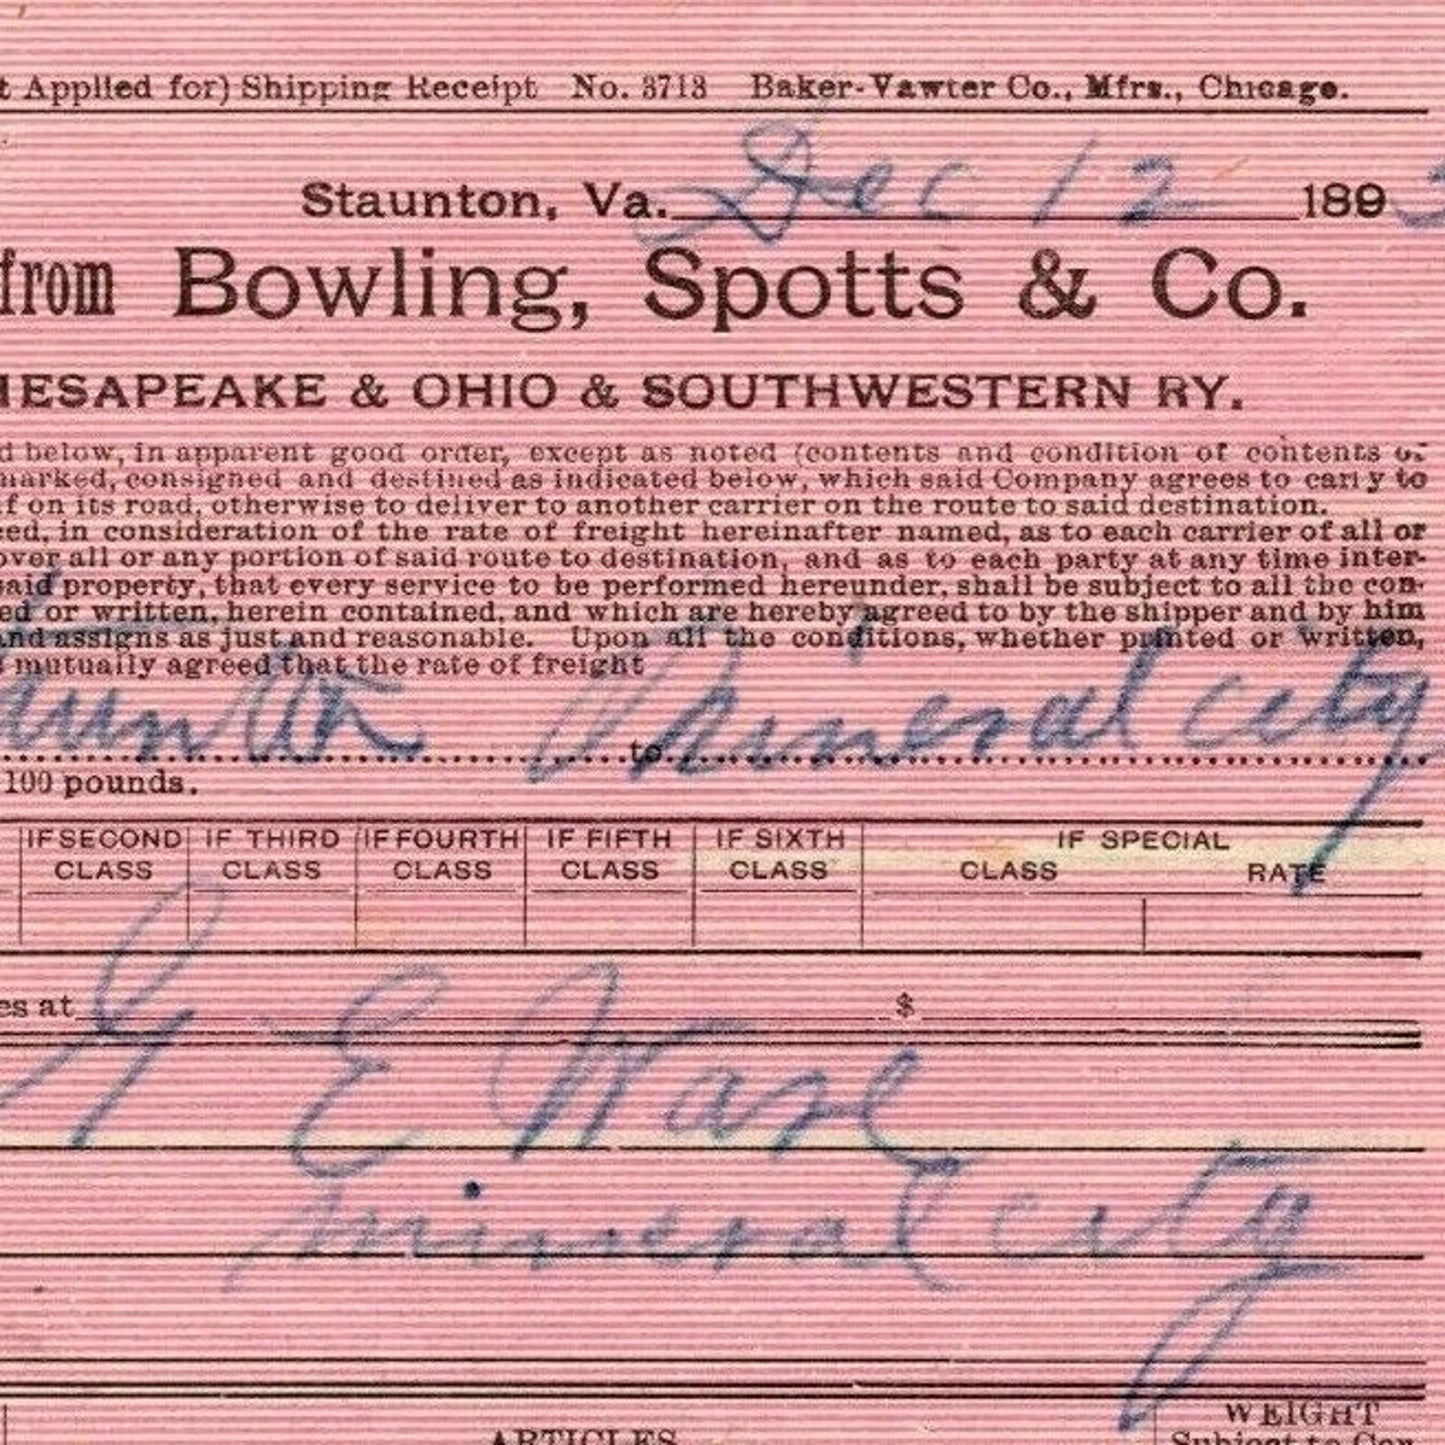 t Applied for) Shipping Receipt No. 3713 Baker-Vawter Co., Mfrs., Chicago.
Staunton, Va. Dec 12 1893
from Bowling, Spotts & Co.
HESAPEAKE & OHIO & SOUTHWESTERN RY.
d below, in apparent good order, except as noted (contents and condition of contents of
marked, consigned and destined as indicated below, which said Company agrees to carry to
if on its road, otherwise to deliver to another carrier on the route to said destination.
eed, in consideration of the rate of freight hereinafter named, as to each carrier of all or
over all or any portion of said route to destination, and as to each party at any time inter-
said property, that every service to be performed hereunder, shall be subject to all the con-
ed or written, herein contained, and which are hereby agreed to by the shipper and by him
and assigns as just and reasonable. Upon all the conditions, whether printed or written,
s mutually agreed that the rate of freight
taunton Va to Mineral city
100 pounds.
IF SECOND CLASS IF THIRD CLASS IF FOURTH CLASS IF FIFTH CLASS IF SIXTH CLASS IF SPECIAL CLASS RATE
es at $
G E Ware
mineral city
ARTICLES WEIGHT
Subject to Cor